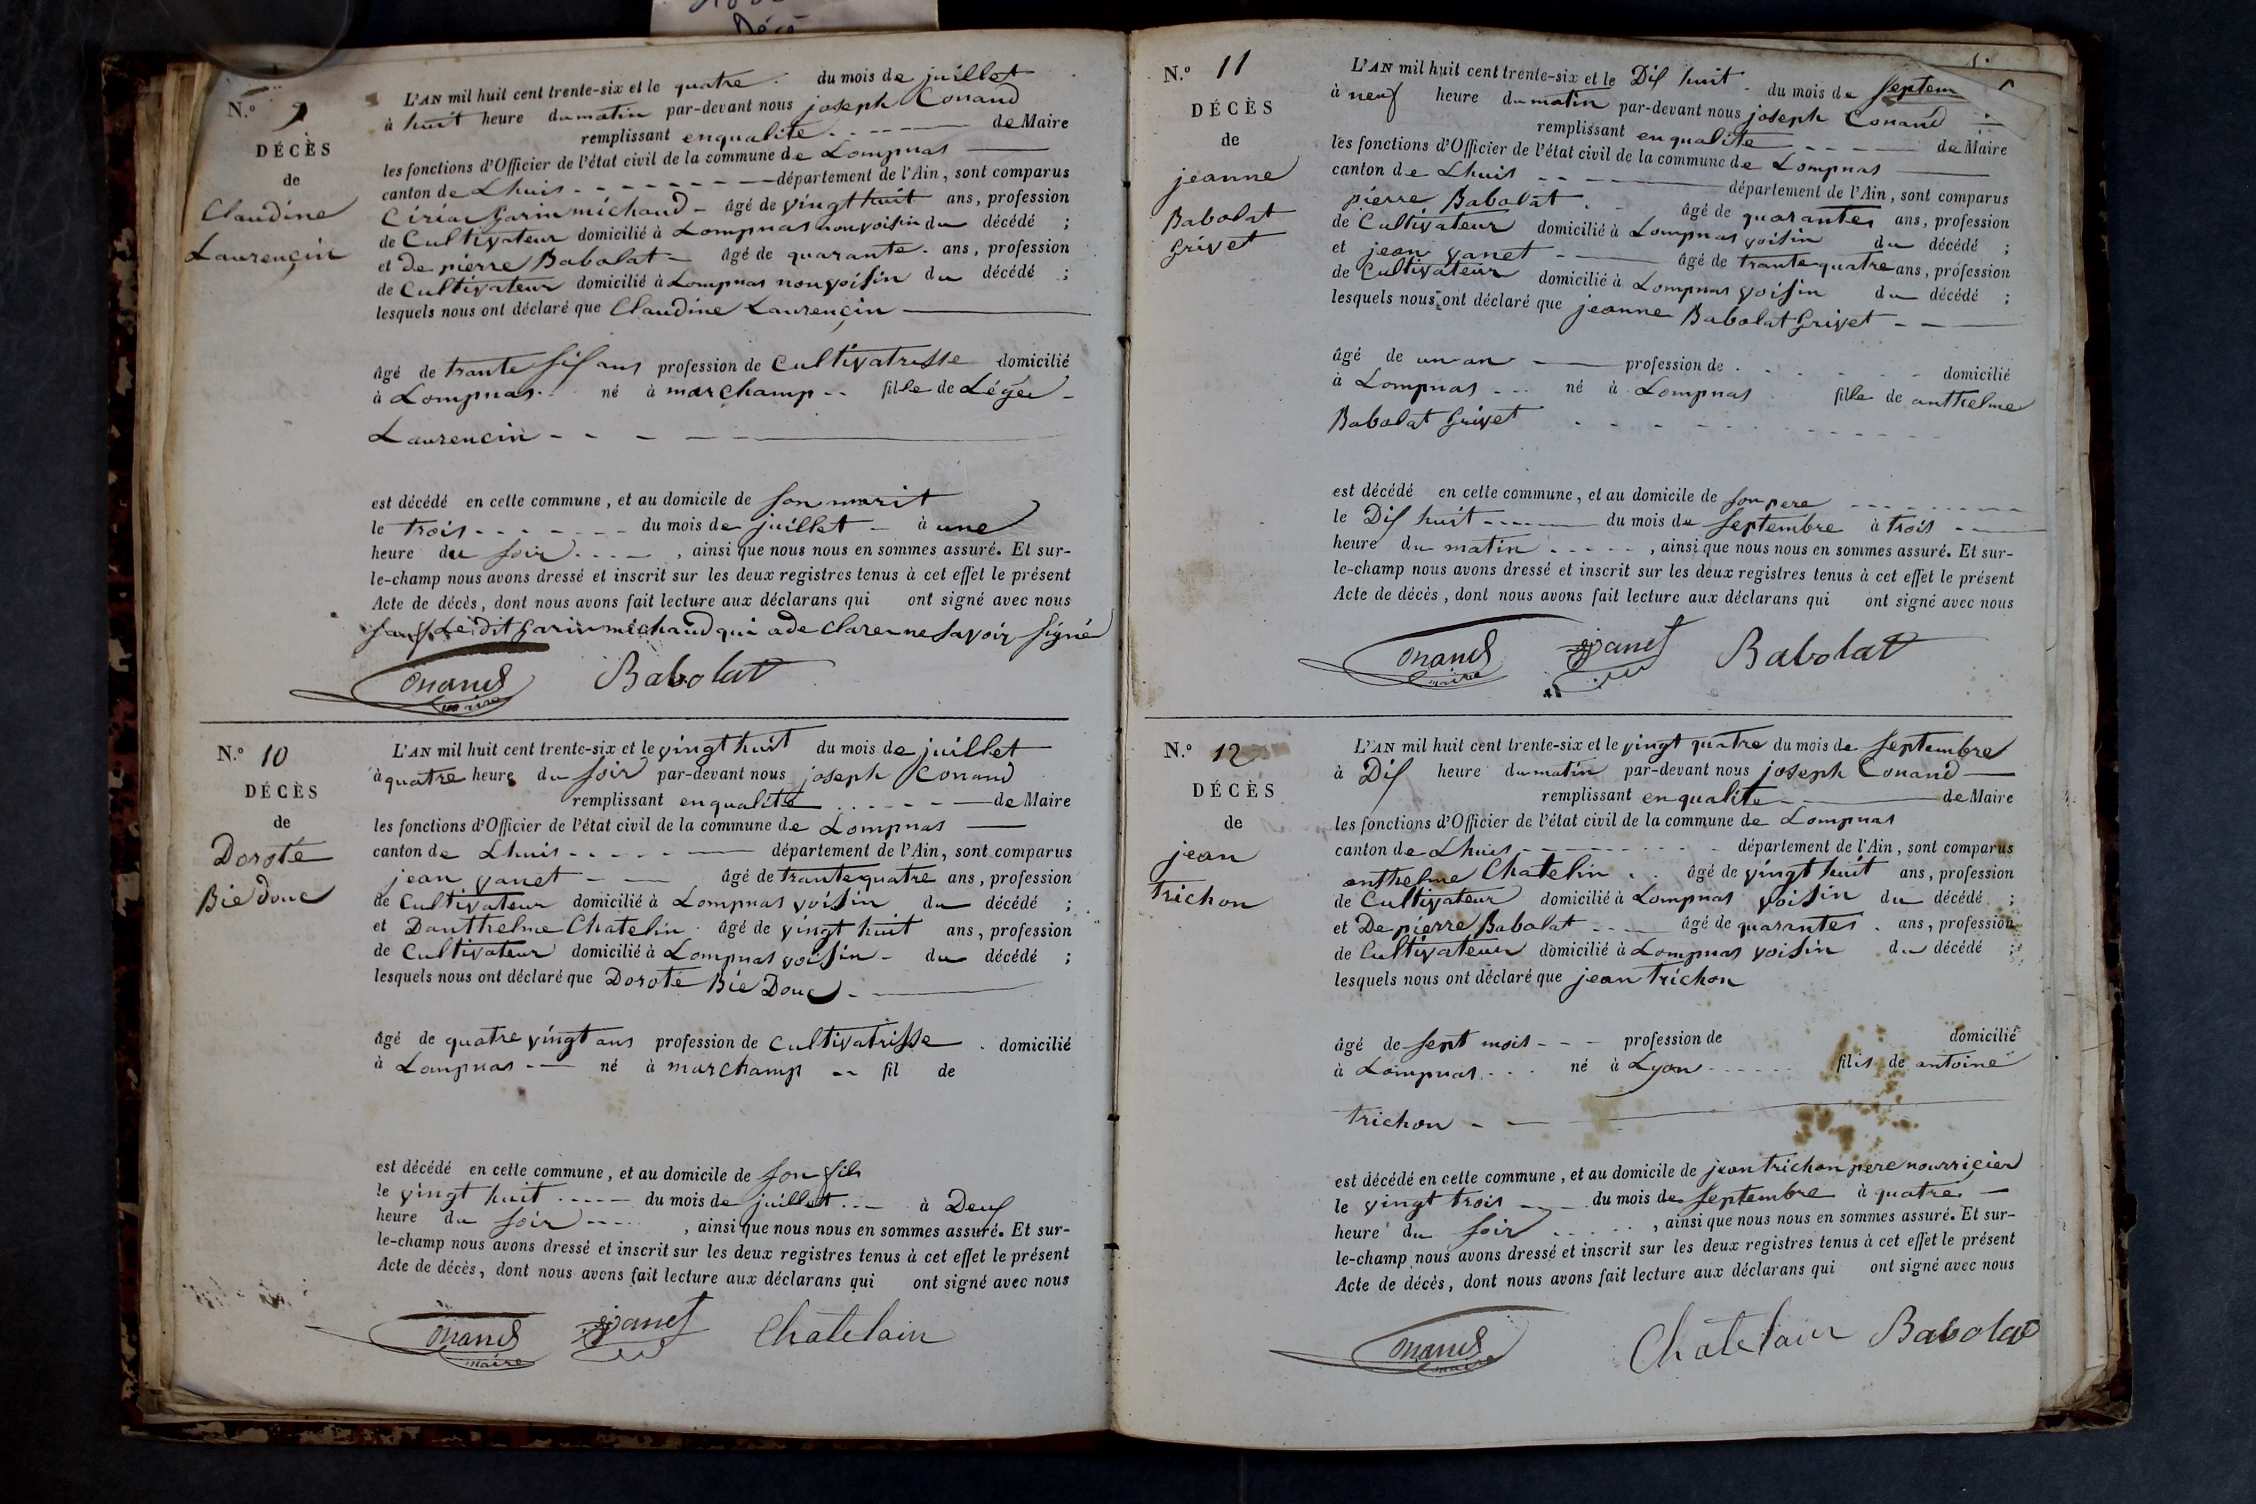 Décè
N.º 9
DÉCÈS
de
Claudine
Laurençin
L'AN mil huit cent trente-six et le quatre du mois de juillet
à huit heure du matin par-devant nous joseph Conand
remplissant enqualité de Maire
les fonctions d'Officier de l'état civil de la commune de Lompnas
canton de Lhuis département de l'Ain, sont comparus
Ciriac garin michaud âgé de vingt huit ans, profession
de Cultivateur domicilié à Lompnas non voisin du décédé ;
et De pierre Babolat âgé de quarante ans, profession
de Cultivateur domicilié à Lompnas non voisin du décédé ;
lesquels nous ont déclaré que Claudine Laurençin
âgé de trante sis ans profession de Cultivatrisse domicilié
à Lompnas né à marchamp fille de Léger
Laurencin
est décédé en cette commune, et au domicile de son marit
le trois du mois de juillet à une
heure du soir, ainsi que nous nous en sommes assuré. Et sur-
le-champ nous avons dressé et inscrit sur les deux registres tenus à cet effet le présent
Acte de décès, dont nous avons fait lecture aux déclarans qui ont signé avec nous
sauf le dit garin michaud qui a de clarer ne savoir signé
Conand maire Babolat
N.º 10
DÉCÈS
de
Doroté
Bie douc
L'AN mil huit cent trente-six et le vingt huit du mois de juillet
à quatre heure du soir par-devant nous joseph Conand
remplissant enqualité de Maire
les fonctions d'Officier de l'état civil de la commune de Lompnas
canton de Lhuis département de l'Ain, sont comparus
jean yanet âgé de trante quatre ans, profession
de Cultivateur domicilié à Lompnas voisin du décédé ;
et Danthelme Chatelin âgé de vingt huit ans, profession
de Cultivateur domicilié à Lompnas voisin du décédé ;
lesquels nous ont déclaré que Doroté Bié Douc
âgé de quatre vingt ans profession de Cultivatrisse domicilié
à Lompnas né à marchamp fil de
est décédé en cette commune, et au domicile de son fils
le vingt huit du mois de juillet à Deus
heure du soir, ainsi que nous nous en sommes assuré. Et sur-
le-champ nous avons dressé et inscrit sur les deux registres tenus à cet effet le présent
Acte de décès, dont nous avons fait lecture aux déclarans qui ont signé avec nous
Conand maire yanet Chatelain
N.º 11
DÉCÈS
de
jeanne
Babolat
Grivet
L'AN mil huit cent trente-six et le Dis huit du mois de septem
à neuf heure du matin par-devant nous joseph Conand
remplissant enqualité de Maire
les fonctions d'Officier de l'état civil de la commune de Lompnas
canton de Lhuis département de l'Ain, sont comparus
pierre Babolat âgé de quarantes ans, profession
de Cultivateur domicilié à Lompnas voisin du décédé ;
et jean yanet âgé de trante quatre ans, profession
de Cultivateur domicilié à Lompnas voisin du décédé ;
lesquels nous ont déclaré que jeanne Babolat Grivet
âgé de un an profession de domicilié
à Lompnas né à Lompnas fille de anthelme
Babolat Grivet
est décédé en cette commune, et au domicile de son pere
le Dis huit du mois de septembre à trois
heure du matin, ainsi que nous nous en sommes assuré. Et sur-
le-champ nous avons dressé et inscrit sur les deux registres tenus à cet effet le présent
Acte de décès, dont nous avons fait lecture aux déclarans qui ont signé avec nous
Conand maire yanet Babolat
N.º 12
DÉCÈS
de
jean
trichon
L'AN mil huit cent trente-six et le vingt quatre du mois de septembre
à Dis heure du matin par-devant nous joseph Conand
remplissant enqualité de Maire
les fonctions d'Officier de l'état civil de la commune de Lompnas
canton de Lhuis département de l'Ain, sont comparus
anthelme Chatelin âgé de vingt huit ans, profession
de Cultivateur domicilié à Lompnas voisin du décédé ;
et De pierre Babolat âgé de quarantes ans, profession
de Cultivateur domicilié à Lompnas voisin du décédé ;
lesquels nous ont déclaré que jean trichon
âgé de sept mois profession de domicilié
à Lompnas né à Lyon fils de antoine
trichon
est décédé en cette commune, et au domicile de jean trichon pere nourriçier
le vingt trois du mois de septembre à quatre
heure du soir, ainsi que nous nous en sommes assuré. Et sur-
le-champ nous avons dressé et inscrit sur les deux registres tenus à cet effet le présent
Acte de décès, dont nous avons fait lecture aux déclarans qui ont signé avec nous
Conand maire Chatelain Babolat